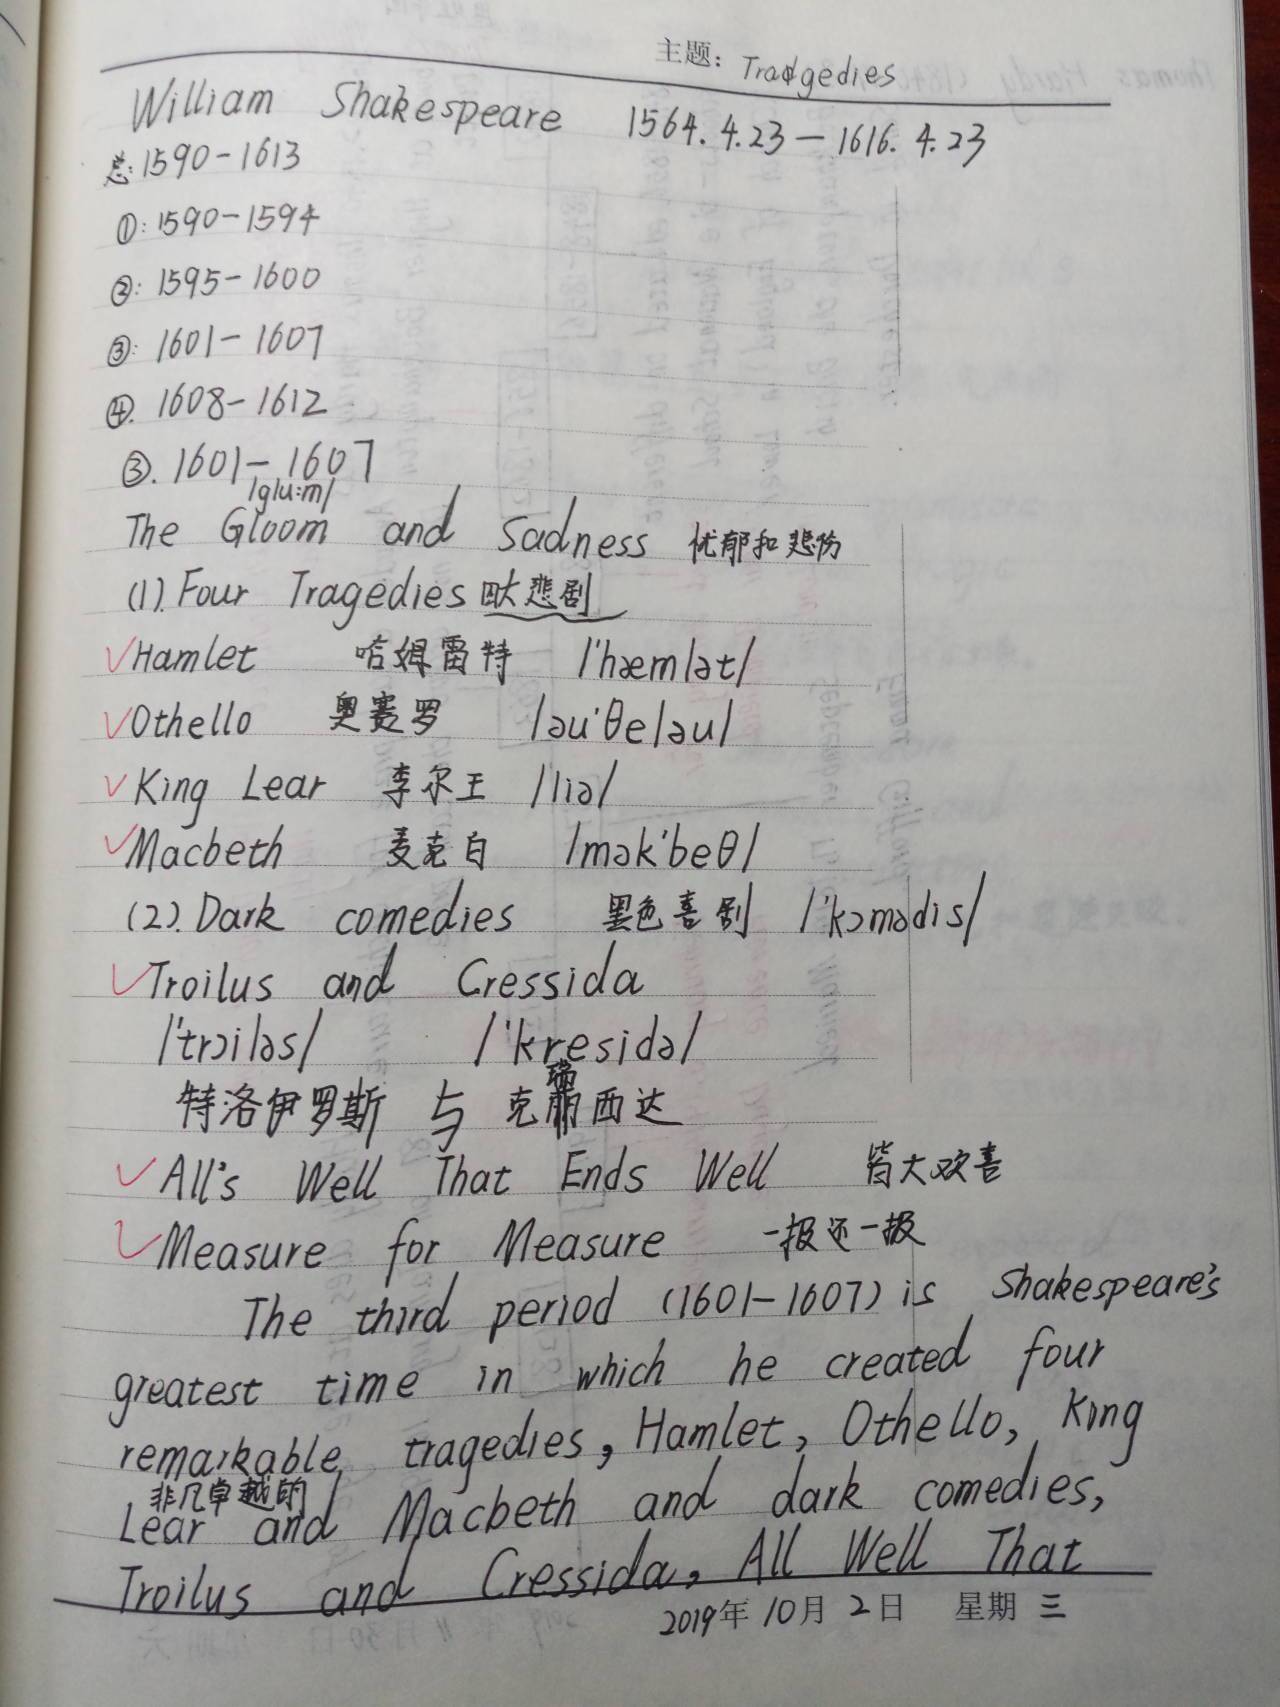 主题: Tragedies
William Shakespeare 1564.4.23—1616.4.23
总:1590-1613
①:1590-1594
②:1595-1600
③:1601-1607
④.1608-1612
③.1601-1607
/glu:m/
The Gloom and Sadness 忧郁和悲伤
(1).Four Tragedies 四大悲剧
✓Hamlet 哈姆雷特 /'hæmlət/
✓Othello 奥赛罗 /əu'θeləu/
✓King Lear 李尔王 /liə/
✓Macbeth 麦克白 /mək'beθ/
(2).Dark comedies 黑色喜剧 /'kɔmədis/
✓Troilus and Cressida
/'trɔiləs/ /'kresidə/
特洛伊罗斯 与 克瑞西达
✓All's Well That Ends Well 皆大欢喜
✓Measure for Measure 一报还一报
The third period (1601-1607) is Shakespeare's
greatest time in which he created four
remarkable tragedies, Hamlet, Othello, King
非凡卓越的
Lear and Macbeth and dark comedies,
Troilus and Cressida, All Well That
2019年10月2日 星期三